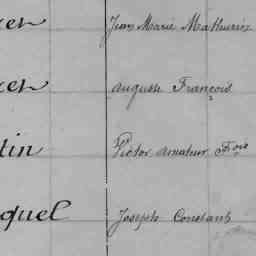 Jean Marie Mathurin
Auguste François
tin Victor Amateur Fçois
quel Joseph Constant